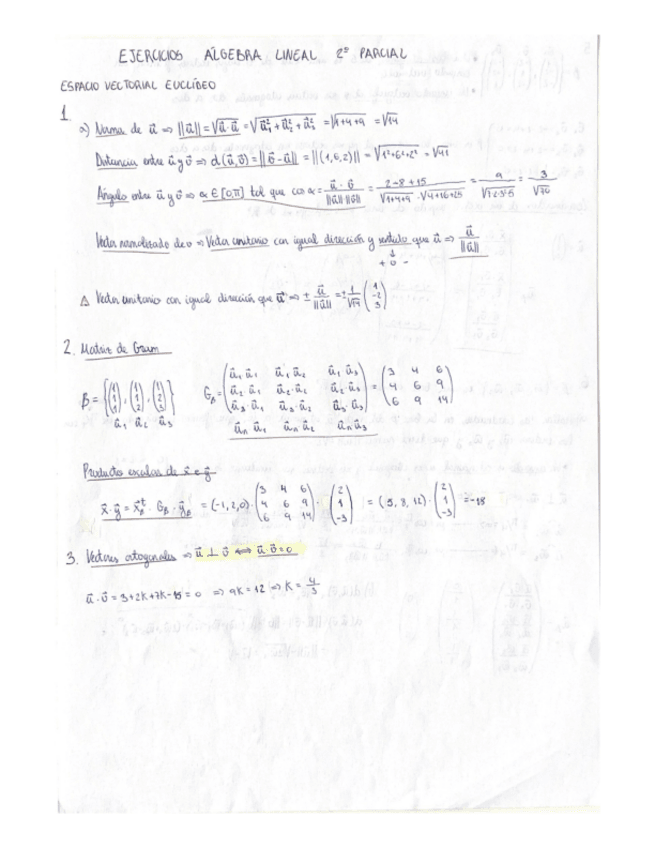 EJERCICIOS ÁLGEBRA LINEAL 2º PARCIAL
ESPACIO VECTORIAL EUCLÍDEO
1
a) Norma de u⃗ ⇒ ||u⃗|| = √(u⃗·u⃗) = √(u₁² + u₂² + u₃²) = √(1+4+9) = √14
Distancia entre u⃗ y v⃗ ⇒ d(u⃗,v⃗) = ||v⃗ - u⃗|| = ||(1,6,2)|| = √(1²+6²+2²) = √41
Ángulo entre u⃗ y v⃗ ⇒ α ∈ [0,π] tal que cos α = (u⃗ · v⃗)/(||u⃗||·||v⃗||) = (2-8+15)/(√(1+4+9) · √(4+16+25)) = 9/√(7·2·3²·5) = 3/√70
Vector normalizado de v ⇒ Vector unitario con igual dirección y sentido que u⃗ ⇒ u⃗/||u⃗||
+ o -
Δ Vector unitario con igual dirección que u⃗ ⇒ ± u⃗/||u⃗|| = ± 1/√14 (1 -2 3)
2. Matriz de Gram
β = {(1 1 1), (1 1 2), (1 2 3)}
u⃗₁ u⃗₂ u⃗₃
G_β = (u⃗₁·u⃗₁ u⃗₁·u⃗₂ u⃗₁·u⃗₃ = (3 4 6
u⃗₂·u⃗₁ u⃗₂·u⃗₂ u⃗₂·u⃗₃ 4 6 9
u⃗₃·u⃗₁ u⃗₃·u⃗₂ u⃗₃·u⃗₃ 6 9 14)
u⃗ₙ·u⃗₁ u⃗ₙ·u⃗₂ u⃗ₙ·u⃗₃)
Producto escalar de x⃗ e y⃗
x⃗·y⃗ = x⃗_β^t · G_β · y⃗_β = (-1,2,0) · (3 4 6 4 6 9 6 9 14) · (2 1 -3) = (5, 8, 12) · (2 1 -3) = -18
3. Vectores ortogonales ⇒ u⃗ ⊥ v⃗ ⟺ u⃗·v⃗ = 0
u⃗ · v⃗ = 3+2k+7k-15 = 0 ⇒ 9k = 12 ⇒ k = 4/3